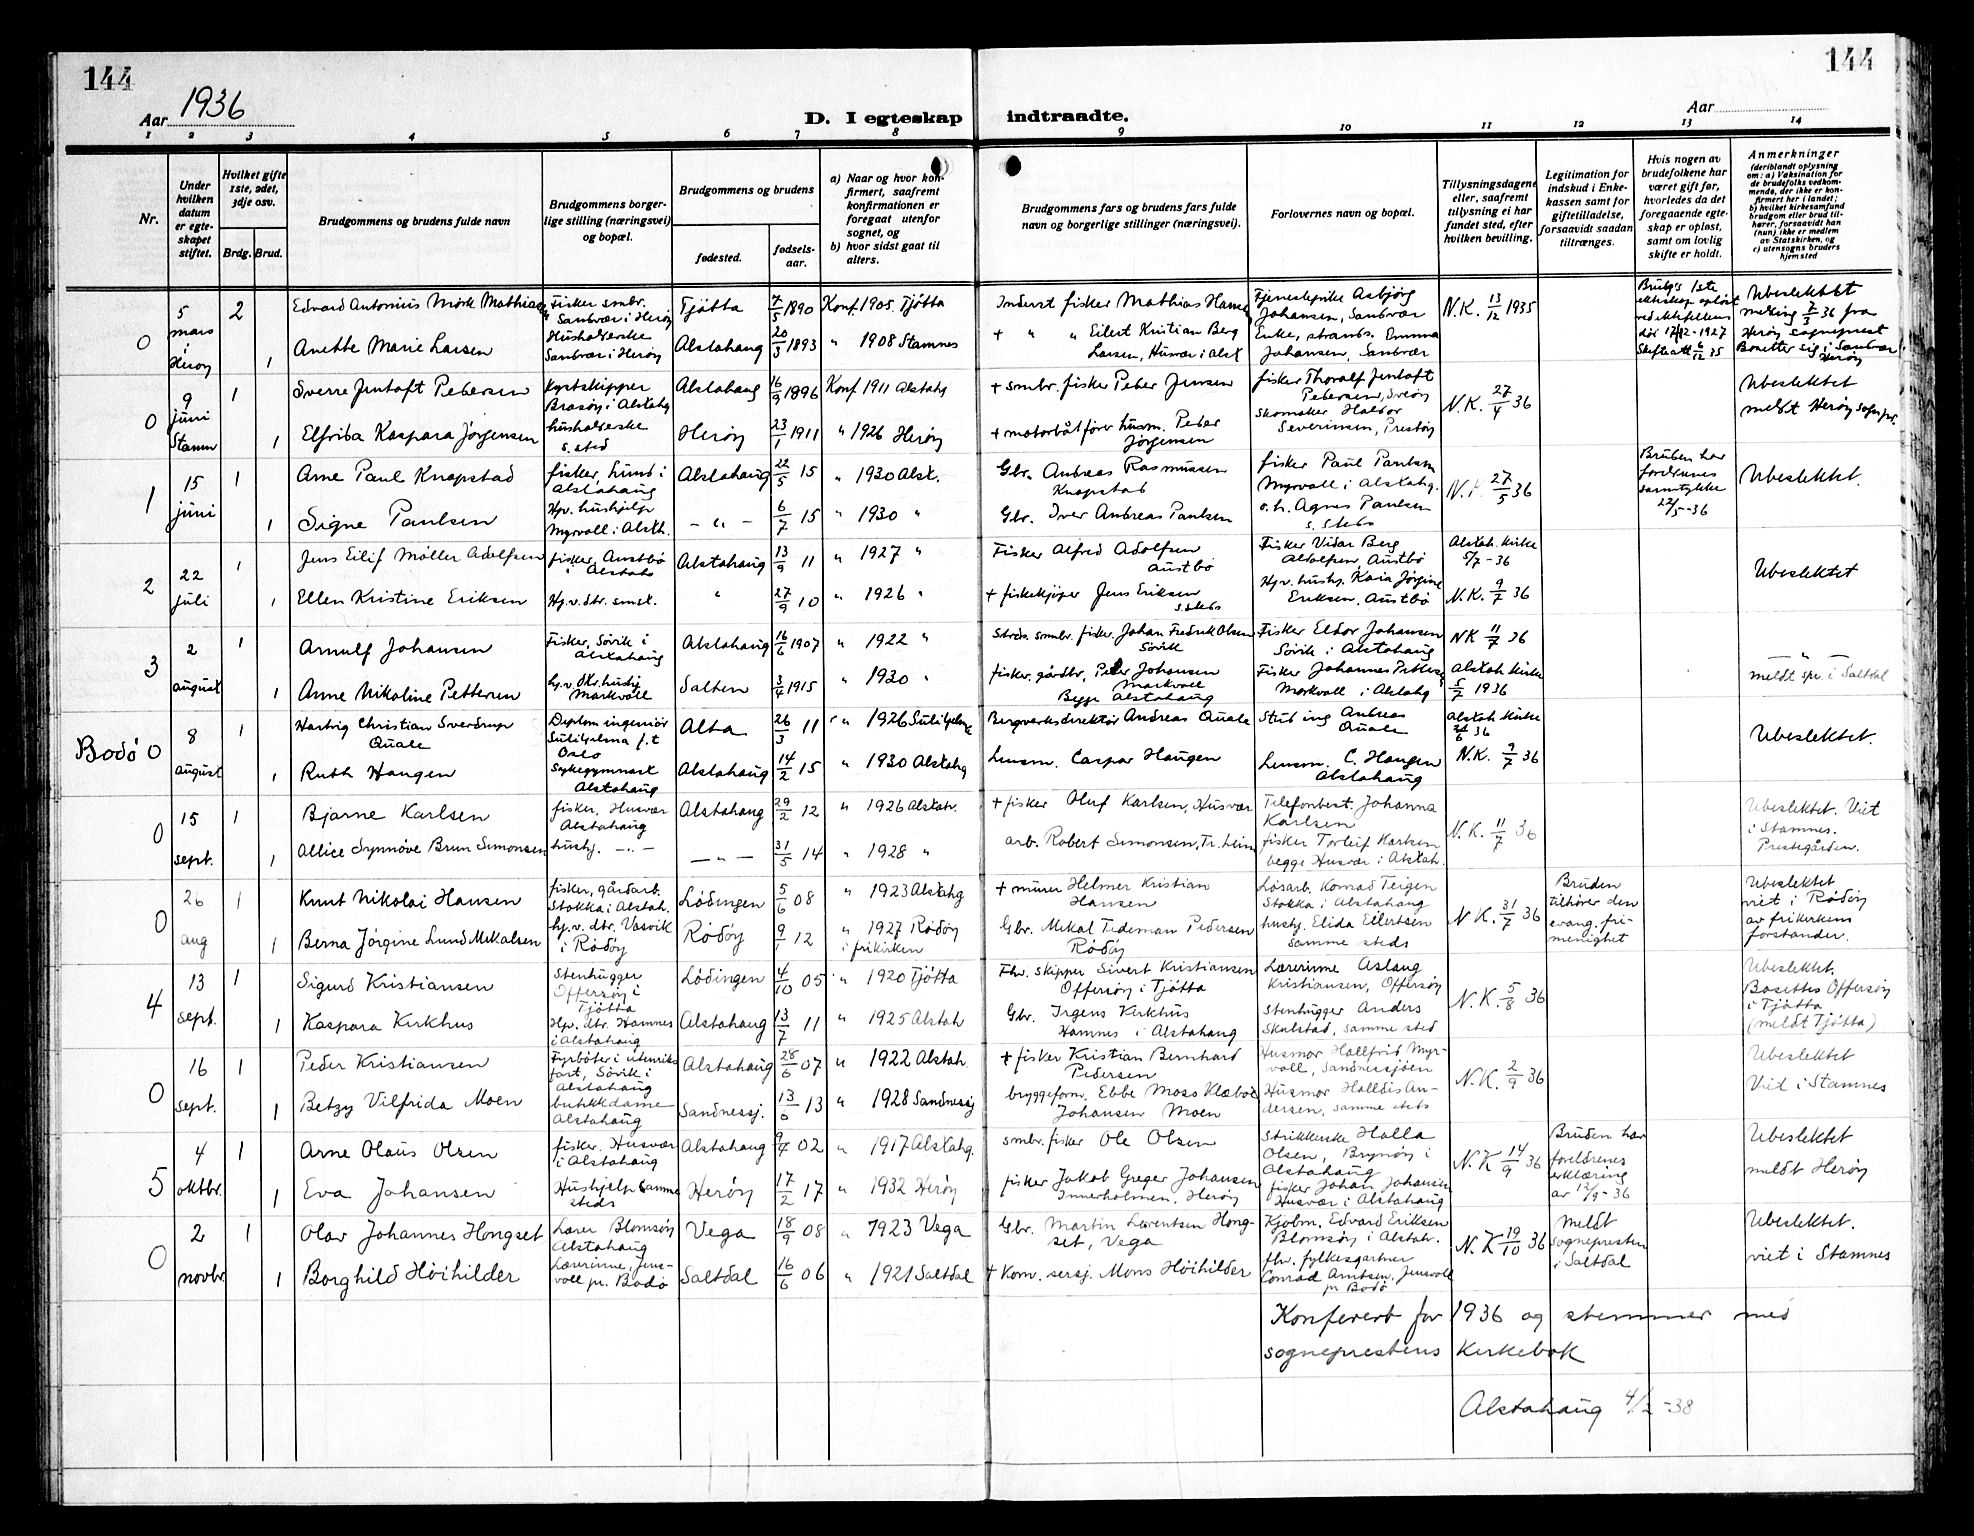 144
144
Aar 1936
D. I egteskap indtraadte.
Aar
1 2 3 4 5 6 7 8 9 10 11 12 13 14
Nr.
Under hvilken datum er egteskapet stiftet.
Hvilket gifte 1ste, 2det, 3dje osv.
Brdg. Brud.
Brudgommens og brudens fulde navn
Brudgommens borgerlige stilling (næringsvei) og bopæl.
Brudgommens og brudens
fødested.
fødselsaar.
a) Naar og hvor konfirmert, saafremt konfirmationen er foregaat utenfor sognet, og
b) hvor sidst gaat til alters.
Brudgommens fars og brudens fars fulde navn og borgerlige stillinger (næringsvei).
Forlovernes navn og bopæl.
Tillysningsdagene eller, saafremt tillysning ei har fundet sted, efter hvilken bevilling.
Legitimation for indskud i Enkekassen samt for giftetilladelse, forsaavidt saadan tiltrænges.
Hvis nogen av brudefolkene har været gift før, hvorledes da det foregaaende egteskap er opløst, samt om lovlig skifte er holdt.
Anmerkninger
(deriblandt oplysning om: a) Vaksination for de brudefolks vedkommende, der ikke er konfirmert her i landet; b) hvilket kirkesamfund brudgom eller brud tilhører, forsaavidt han (hun) ikke er medlem av Statskirken, og c) utensogns bruders hjemsted
0 5 mars i Herøy 2 Edvard Antonius Mørk Mathias Fisker smbr. Sandvær i Herøy Tjøtta 7/5 1890 Konf. 1905. Tjøtta Inderst fisker Mathias Hansen Tjenestepike Asbjørg Johansen, Sandvær N.K. 13/12 1935
1 Anette Marie Larsen Husholderske Sandvær i Herøy Alstahaug 20/3 1893 " 1908 Stamnes + " " Eilert Kristian Berg Larsen, Husvær i Alst. Enke, strands. Emma Johansen, Sandvær
Brudg's 1ste ekteskap opløst ved ektefellens død 17/12-1927 Skifteatt 6/12 35
Ubeslektet melding 7/3 36 fra Herøy sogneprest Bosetter sig i Sandvær Herøy
0 9 juni Stamn 1 Sverre Jentoft Pedersen Kystskipper Brasøy i Alstahg Alstahaug 16/9 1896 Konf 1911 Alstahg + smbr. fisker Peder Jensen fisker Thoralf Jentoft Pedersen, N.K. 27/4 36 Ubeslektet
1 Elfrida Kaspara Jørgensen husholderske s. sted Herøy 23/1 1911 " 1926 Herøy + motorbåtfører husm. Peder Jørgensen Skomaker Haldor Severinsen, Prestøy meldt Herøy sognepr.
1 15 juni 1 Arne Paul Knapstad fisker, Lund i Alstahaug Alstahaug 22/5 15 " 1930 Alst. Gbr. Andreas Rasmussen Knapstad fisker Paul Paulsen Myrvoll i Alstahg. N.K. 27/5 36 Bruden har foreldrenes samtykke 22/5-36 Ubeslektet.
1 Signe Paulsen Hpv. hushjelp Myrvoll i Alsth. - " - 6/7 15 " 1930 " Gbr. Iver Andreas Paulsen o.h. Agnes Paulsen s. steds
2 22 juli 1 Jens Eilif Møller Adolfsen fisker, Austbø i Alstahg Alstahaug 13/9 11 " 1927 " Fisker Alfred Adolfsen Austbø Fisker Vidar Berg Adolfsen, Austbø Alstah. kirke 5/7-36 Ubeslektet
1 Ellen Kristine Eriksen Hj.v. dtr. smst. " 27/9 10 " 1926 " + fiskekjøper Jens Eriksen s. steds Hj.v. hushj. Kaia Jørgine Eriksen, Austbø N.K. 9/7 36
3 2 august 1 Arnulf Johansen Fisker, Søvik i Alstahaug Alstahaug 16/6 1907 " 1922 " Strds. smbr. fisker, Johan Fredrik Olsen Søvik Fisker Eldor Johansen Søvik i Alstahaug NK 11/7 36
1 Anne Nikoline Pettersen hj.v. dtr. hushj. Markvoll Salten 3/4 1915 " 1930 " fisker, gårdbr, Peder Johansen Markvoll Begge Alstahaug Fisker Johannes Petters Markvoll i Alstahg Alstah kirke 5/7 1936 — " — meldt spr. i Saltdal
Bodø 0 8 august 1 Hartvig Christian Sverdrup Quale Deplom ingeniør Sulitjelma f.t Oslo Alta 26/3 11 " 1926 Sulitjelma Bergverksdirektør Andreas Quale Stud ing Andreas Quale Alstah. kirke 36 Ubeslektet.
1 Ruth Haugen Sykegymnast Alstahaug Alstahaug 14/2 15 " 1930 Alstahg Lensm. Caspar Haugen Lensm. C. Haugen Alstahaug N.K. 9/7 36
0 15 sept. 1 Bjarne Karlsen fisker, Husvær Alstahaug Alstahaug 29/2 12 " 1926 Alstah. + fisker Oluf Karlsen, Husvær Telefonbest. Johanna Karlsen N.K. 11/7 36 Ubeslektet. Viet i Stamnes. Prestegården.
1 Allice Synnøve Brun Simonsen hushj. - " - — " — 31/5 14 " 1928 " arb. Robert Simonsen, Tr.heim fisker Torleif Karlsen begge Husvær i Alstah.
0 26 aug 1 Knut Nikolai Hansen fisker, gårdarb. Stokka i Alstah. Lødingen 5/6 08 " 1923 Alstahg + murer Helmer Kristian Hansen Løsarb. Konrad Teigen Stokka i Alstahaug N.K. 31/7 36 Bruden tilhører den evang. frimenighet Ubeslektet viet i Rødøy av frikirkens forstander.
1 Berna Jørgine Lund Mikalsen hj.v. dtr. Vasvik i Rødøy Rødøy 9/2 12 " 1927 Rødøy i frikirken Gbr. Mikal Tideman Pedersen Rødøy hushj. Elida Eilertsen samme steds
4 13 sept. 1 Sigurd Kristiansen Stenhugger Offersøy i Tjøtta Lødingen 4/10 05 " 1920 Tjøtta Fhv. skipper Sivert Kristiansen Offersøy i Tjøtta Lærerinne Aslaug Kristiansen, Offersøy N.K. 5/8 36 Ubeslektet. Bosettes Offersøy i Tjøtta (meldt Tjøtta)
1 Kaspara Kirkhus Hjv. dtr. Hamnes i Alstahaug Alstahaug 13/7 11 " 1925 Alstah Gbr. Irgens Kirkhus Hamnes i Alstahaug Stenhugger Anders Skulstad, samme sted
0 16 sept. 1 Peder Kristiansen Fyrbøter i utenriks fart, Søvik i Alstahaug Alstahaug 28/6 07 " 1922 Alstah. + fisker Kristian Bernhard Pedersen Husmor Hallfrid Myrvoll, Sandnessjøen N.K. 2/9 36 Ubeslektet Viet i Stamnes
1 Betzy Vilfrida Moen butikkdame Alstahaug Sandnessj. 13/6 13 " 1928 Sandnessj bryggeform. Ebbe Moss Klæboe Johansen Moen Husmor Halldis Andersen, samme steds
5 4 oktbr. 1 Arne Olaus Olsen fisker, Husvær i Alstahaug Alstahaug 9/4 02 " 1917 Alstahg. smbr. fisker Ole Olsen Strikkerske Halla Olsen, Brynøy i Alstahaug N.K 14/9 36 Bruden har foreldrenes erklæring av 12/9-36 Ubeslektet meldt Herøy
1 Eva Johansen Hushjelp samme steds Herøy 17/2 17 " 1932 Herøy fisker Jakob Greger Johansen Innerholmen, Herøy fisker Johan Johansen Husvær i Alstahaug
0 2 novbr 1 Olav Johannes Hongset Lærer Blomsøy Alstahaug Vega 18/9 08 " 1923 Vega Gbr. Martin Lorentsen Hongset, Vega Kjøbm. Edvard Eriksen Blomsøy i Alstah. N.K 19/10 36 Meldt sognepresten i Saltdal Ubeslektet. viet i Stamnes
1 Borghild Høihilder Lærerinne, Jensvoll pr. Bodø Saltdal 16/6 06 " 1921 Saltdal + Kom. sersj. Mons Høihilder fhv. fylkesgartner Conrad Arntsen, Jensvoll pr Bodø
Konferert for 1936 og stemmer med
sogneprestens kirkebok
Alstahaug 4/2-38